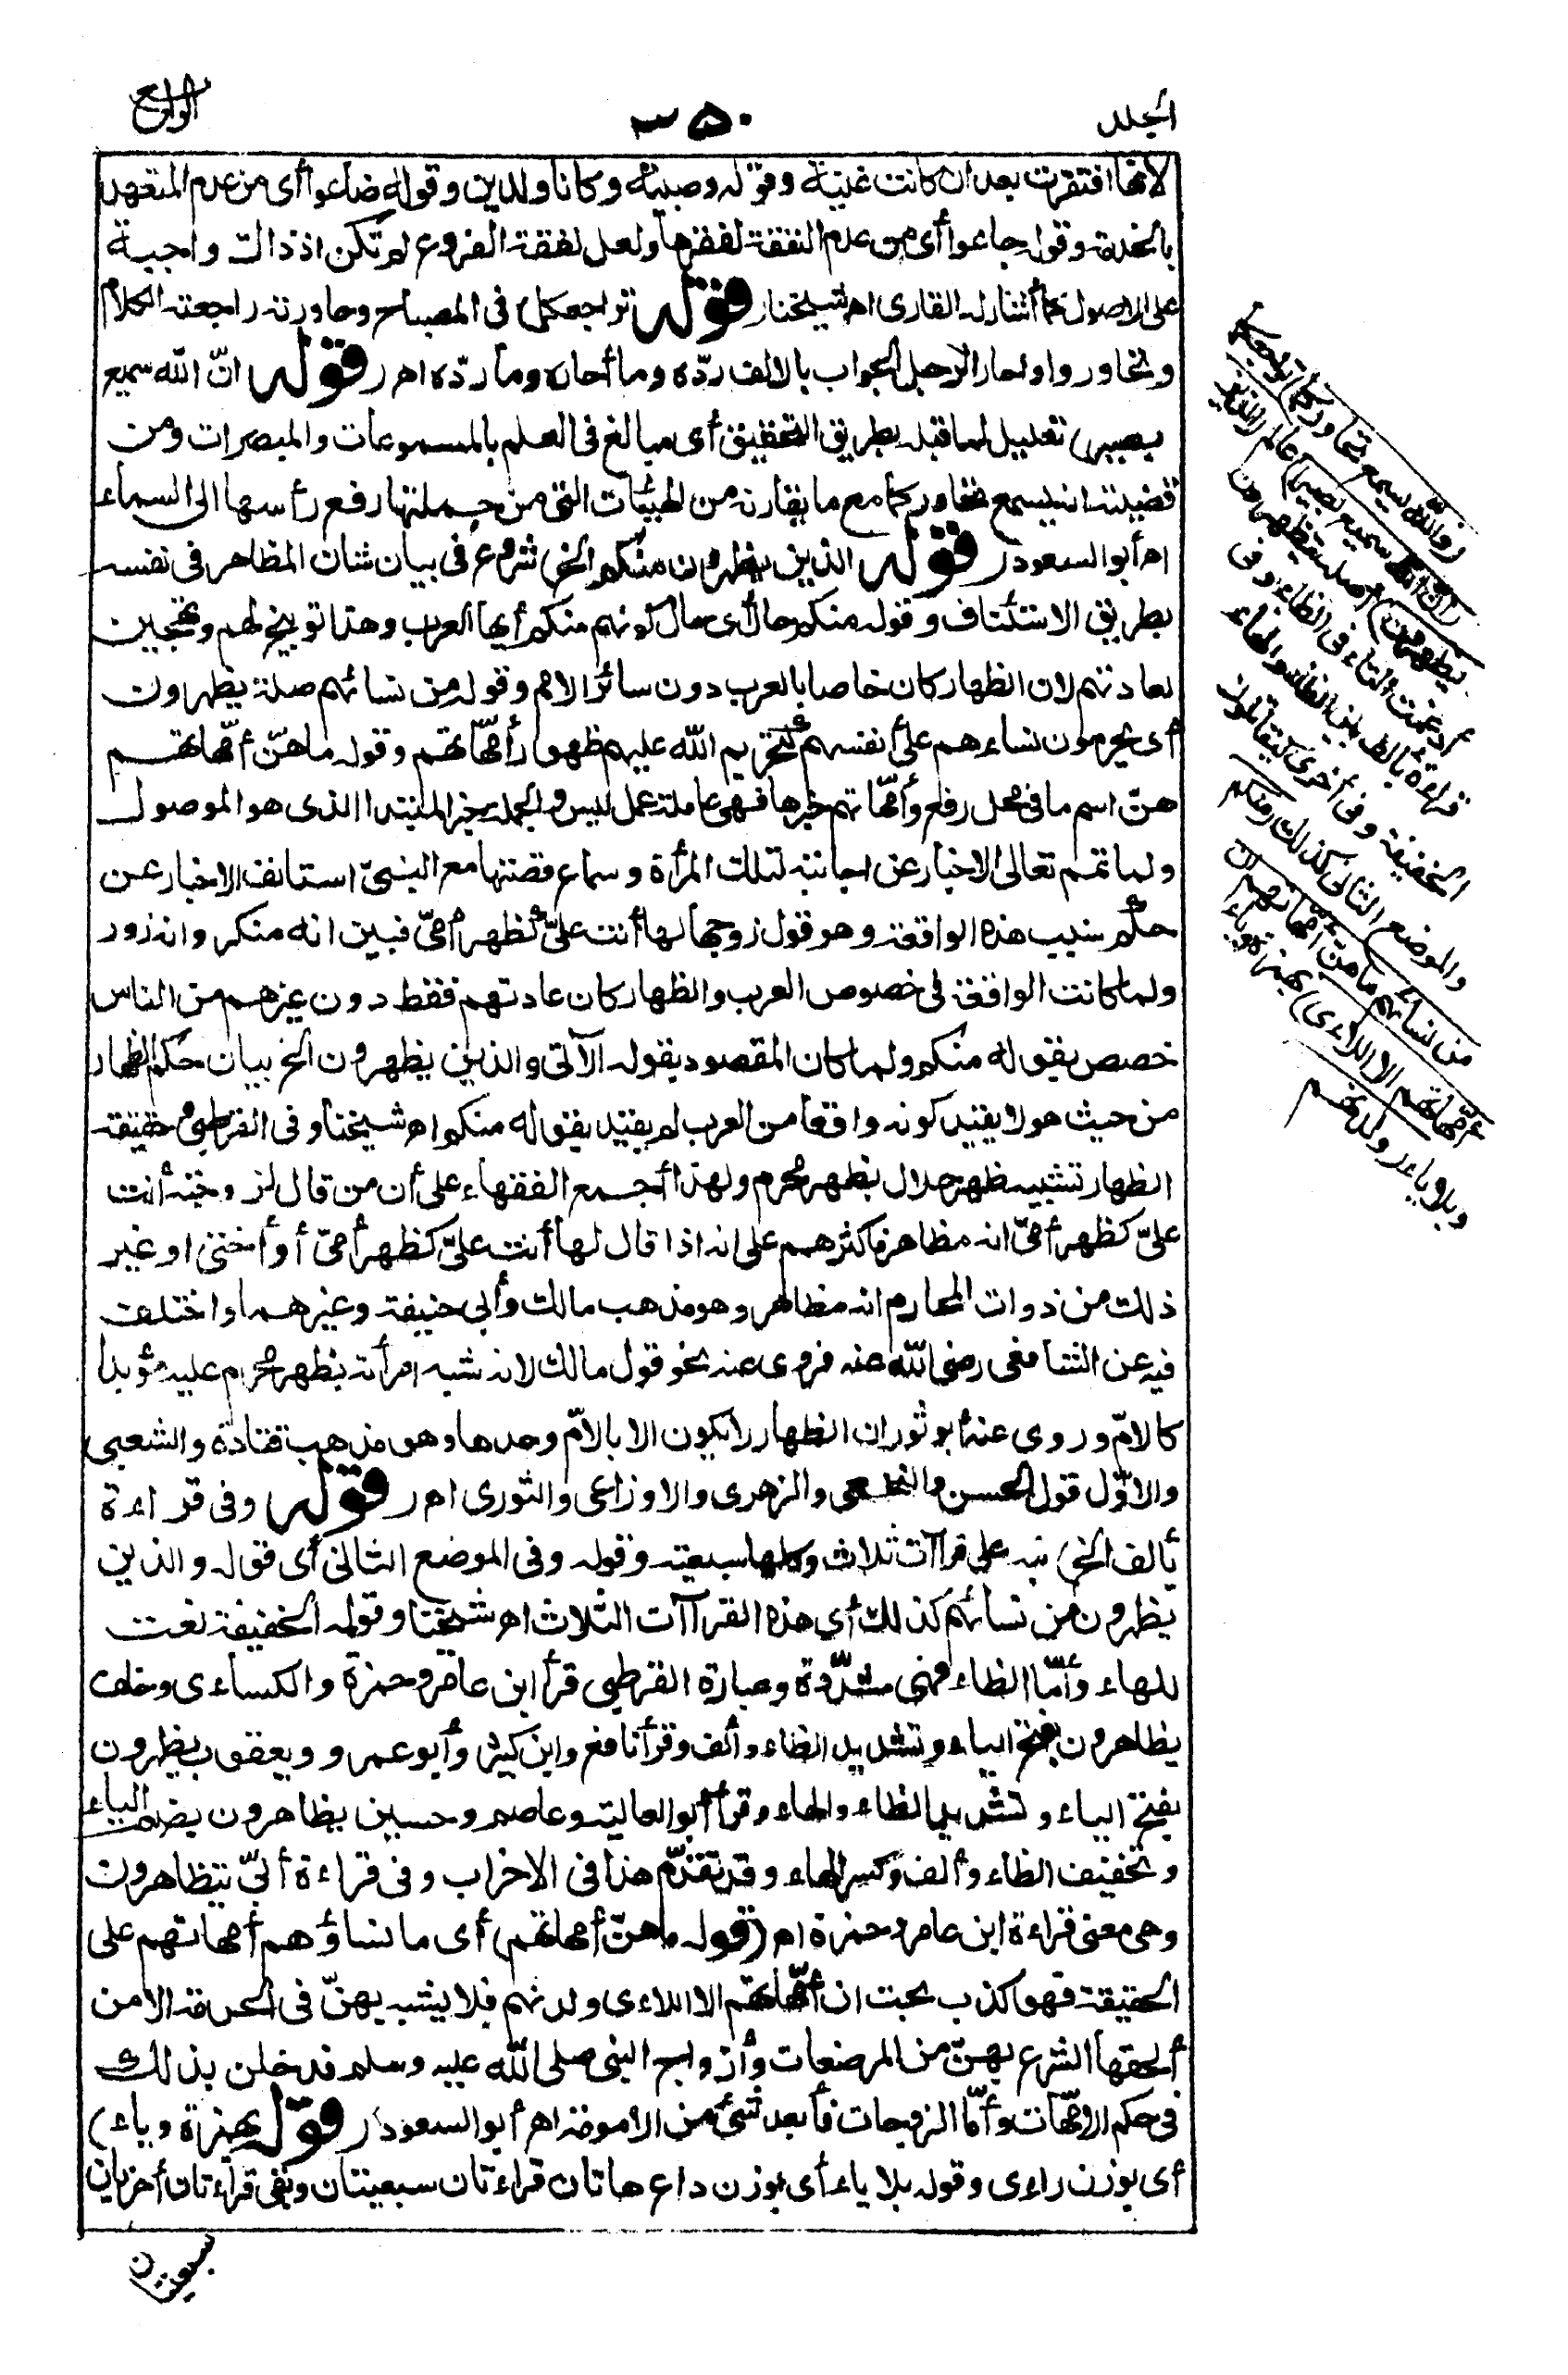 الجلد
٣٥٠
الرابع
لانها افتقرت بعد ان كانت غنية وقوله وصبية وكانا ولدين وقوله ضاعوا أى من عدم المتعهد
بالخدمة وقوله جاعوا أى من عدم النفقة لفقرها ولعل نفقة الفروع لم تكن اذ ذاك واجبة
على الاصول كما أشار له القارى اه شيخنا (قوله تراجعكما) فى المصباح وحاورته راجعته الكلام
وتحاوروا واحار الرجل الجواب بالالف ردّه وما أحاره وما ردّه اه (قوله انّ الله سميع
بصير) تعليل لما قبله بطريق التحقيق أى مبالغ فى العلم بالمسموعات والمبصرات ومن
قضيته انه يسمع تحاوركما مع ما يقارنه من الهيئات التى من جملتها رفع رأسها الى السماء
اه أبو السعود (قوله الذين يظهرون منكم الخ) شروع فى بيان شان المظاهر فى نفسه
بطريق الاستئناف وقوله منكم حال أى حال كونهم منكم أيها العرب وهذا توبيخ لهم وتهجين
لعادتهم لان الظهار كان خاصا بالعرب دون سائر الامم وقوله من نسائهم صلة يظهرون
أى يحرمون نساءهم على أنفسهم كتحريم الله عليهم ظهور أمّهاتهم وقوله ما هنّ أمّهاتهم
هنّ اسم ما فى محل رفع وأمّهاتهم خبرها فهى عاملة عمل ليس والجملة خبر المبتدا الذى هو الموصول
ولما تمم تعالى الاخبار عن اجابته لتلك المرأة وسماع قصتها مع النبىّ استانف الاخبار عن
حكم سبب هذه الواقعة وهو قول زوجها لها أنت علىّ كظهر أمىّ فبين انه منكر وانه زور
ولما كانت الواقعة فى خصوص العرب والظهار كان عادتهم فقط دون غيرهم من الناس
خصص بقوله منكم ولما كان المقصود بقوله الآتى والذين يظهرون الخ بيان حكم الظهار
من حيث هو لا يقيد كونه واقعا من العرب لم يقيد بقوله منكم اه شيخنا وفى القرطبى حقيقة
الظهار تشبيه ظهر حلال بظهر محرم ولهذا أجمع الفقهاء على أن من قال لزوجته أنت
علىّ كظهر أمىّ انه مظاهر وأكثرهم على انه اذا قال لها أنت علىّ كظهر أمىّ أو أختى او غير
ذلك من ذوات المحارم انه مظاهر وهو مذهب مالك وأبى حنيفة وغيرهما واختلف
فيه عن الشافعى رضى الله عنه فروى عنه نحو قول مالك لانه شبه امرأته بظهر محرم عليه مؤبدا
كالامّ وروى عنه أبو ثور ان الظهار لا يكون الا بالامّ وحدها وهو مذهب قتادة والشعبى
والاوّل قول الحسن والنخعى والزهرى والاوزاعى والثورى اه (قوله وفى قراءة
بألف الخ) نبه على قراآت ثلاث وكلها سبعية وقوله وفى الموضع الثانى أى قوله والذين
يظهرون من نسائهم كذلك أى هذه القراآت الثلاث اه شيخنا وقوله الخفيفة نعت
للهاء وأمّا الظاء فهى مشدّدة وعبارة القرطبى قرأ ابن عامر وحمزة والكساءى وخلف
يظاهرون بفتح الياء وتشديد الظاء وألف وقرأ نافع وابن كثير وأبو عمرو ويعقوب يظهرون
بفتح الياء وتشديد الظاء والهاء وقرأ أبو العالية وعاصم وحسين يظاهرون بضم الياء
وتخفيف الظاء وألف وكسر الهاء وقد تقدّم هذا فى الاحزاب وفى قراءة أبىّ يتظاهرون
وهى معنى قراءة ابن عامر وحمزة اه (قوله ما هنّ أمهاتهم) أى ما نساؤهم أمهاتهم على
الحقيقة فهو كذب بحت ان أمّهاتهم الا اللاءى ولدنهم فلا يشبه بهنّ فى الحرمة الا من
ألحقها الشرع بهنّ من المرضعات وأزواج النبى صلى الله عليه وسلم فدخلن بذلك
فى حكم الامّهات وأمّا الزوجات فأبعد شىء من الأمومة اه أبو السعود (قوله بهمزة وياء)
أى بوزن راءى وقوله بلا ياء أى بوزن داع هاتان قراءتان سبعيتان وبقى قراءتان أخريان
(والله يسمع تحاوركما) تراجعكما
(ان الله سميع بصير) عالم (الذين
يظهرون) أصله يتظهرون
أدغمت التاء فى الظاء وفى
قراءة بألف بين الظاء والهاء
الخفيفة وفى أخرى كيقاتلون
والموضع الثانى كذلك (منكم
من نسائهم ما هنّ أمّهاتهم ان
أمّهاتهم الا اللاءى) بهمزة وياء
وبلا ياء (ولدنهم
سبعيتان